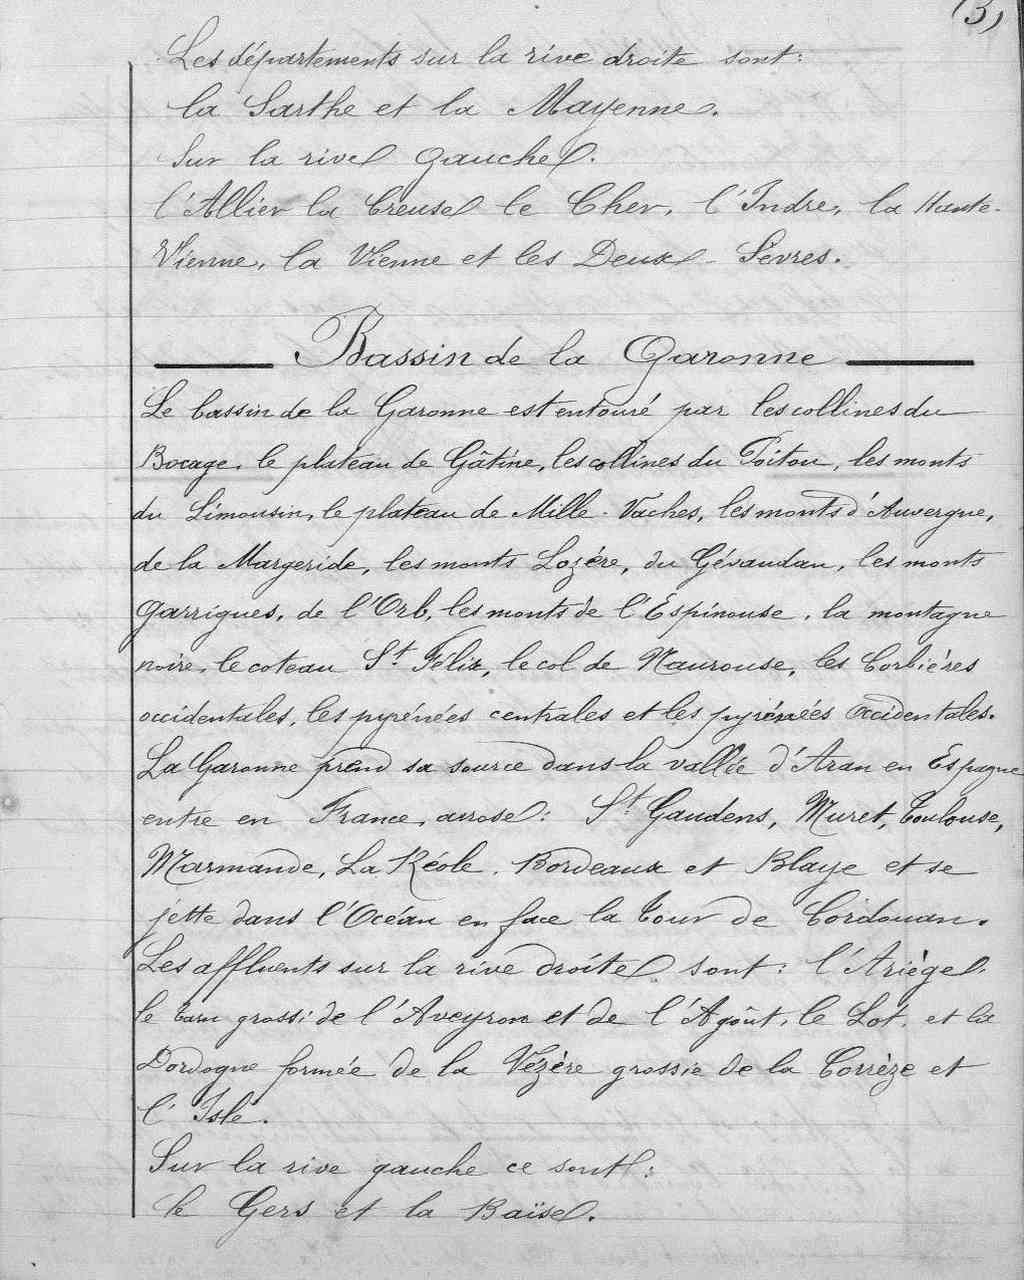 (3)
Les départements sur la rive droite sont:
la Sarthe et la Mayenne.
Sur la rive gauche.
l'Allier la Creuse le Cher, l'Indre, la Haute-
Vienne, la Vienne et les Deux-Sèvres.
Bassin de la Garonne
Le bassin de la Garonne est entouré par les collines du
Bocage, le plateau de Gâtine, les collines du Poitou, les monts
du Limousin, le plateau de Mille-Vaches, les monts d'Auvergne,
de la Margeride, les monts Lozère, du Gévaudan, les monts
Garrigues, de l'Orb, les monts de l'Espinouse, la montagne
noire, le coteau St Félix, le col de Naurouse, les Corbières
occidentales, les pyrénées centrales et les pyrénées Occidentales.
La Garonne prend sa source dans la vallée d'Aran en Espagne
entre en France, arrose: St Gaudens, Muret, Toulouse,
Marmande, La Réole, Bordeaux et Blaye et se
jette dans l'Océan en face la Tour de Cordouan.
Les affluents sur la rive droite sont: l'Ariège,
le Tarn grossi de l'Aveyron et de l'Agoût, le Lot, et la
Dordogne formée de la Vézère grossie de la Corrèze et
l'Isle.
Sur la rive gauche ce sont:
le Gers et la Baïse.